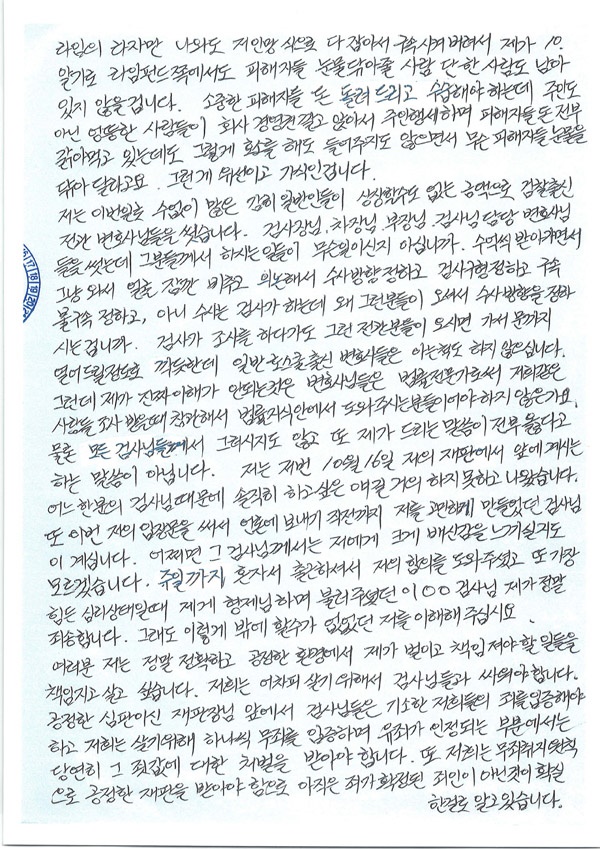 라임의 라자만 나와도 저인망식으로 다 잡아서 구속시켜 버려서 제가 10.
알기로 라임펀드쪽에서도 피해자들 눈물 닦아줄 사람 단 한 사람도 남아
있지 않을겁니다. 소중한 피해자들 돈 돌려 드리고 수습해야 하는데 주인도
아닌 엉뚱한 사람들이 회사 경영권 깔고 앉아서 주인행세하며 피해자들 돈 전부
갉아먹고 있는데도 그렇게 해도 들어주지도 않으면서 무슨 피해자들 눈물을
닦아 달라고요. 그런게 위선이고 가식인겁니다.
저는 이번일로 수없이 많은 감히 일반인들이 상상할수도 없는 금액으로 검찰출신
전관 변호사님들을 썼습니다. 검사장님, 차장님, 부장님, 검사님 담당 변호사님
들을 썼는데 그분들께서 하시는일들이 무슨일이신지 아십니까. 수억씩 받아가면서
그냥 와서 얼굴 잠깐 비추고 의논해서 수사방향 정하고 검사구형정하고 구속
불구속 정하고, 아니 수사는 검사가 하는데 왜 그런분들이 오셔서 수사방향을 정하
시는겁니까. 검사가 조사를 하다가도 그런 전관분들이 오시면 가서 문까지
열어드릴정도로 깍듯한데 일반 로스쿨출신 변호사들은 아는척도 하지 않으십니다.
그런데 제가 진짜 이해가 안되는것은 변호사님들은 법률전문가로써 저희같은
사람들 조사 받을때 참관해서 법률지식안에서 도와주시는분들이여야 하지 않은가요.
물론 모든 검사님들께서 그러시지도 않고 또 제가 드리는 말씀이 전부 옳다고
하는 말씀이 아닙니다. 저는 저번 10월 16일 저의 재판에서 앞에 계시는
어느 한분의 검사님때문에 솔직히 하고싶은 얘길 거의 하지 못하고 나왔습니다.
또 이번 저의 입장문을 써서 언론에 보내기 직전까지 저를 고민하게 만들었던 검사님
이 계십니다. 어쩌면 그 검사님께서는 저에게 크게 배신감을 느끼실지도
모르겠습니다. 휴일까지 혼자서 출근하셔서 저의 합의를 도와주셨고 또 가장
힘든 심리상태일때 제게 형제님하며 불러주셨던 이OO 검사님 제가 정말
죄송합니다. 그래도 이렇게 밖에 할수가 없었던 저를 이해해 주십시오.
여러분 저는 정말 정확하고 공정한 환경에서 제가 벌이고 책임져야할 일들을
책임지고 살고 싶습니다. 저희는 어차피 살기위해서 검사님들과 싸워야합니다.
공정한 심판이신 재판장님 앞에서 검사님들은 기소한 저희들의 죄를 입증해야
하고 저희는 살기위해 하나씩 무죄를 입증하며 유죄가 인정되는 부분에서는
당연히 그 죗값에 대한 처벌을 받아야 합니다. 또 저희는 무죄취지원칙
으로 공정한 재판을 받아야 함으로 아직은 죄가 확정된 죄인이 아닌것이 확실
한걸로 알고있습니다.